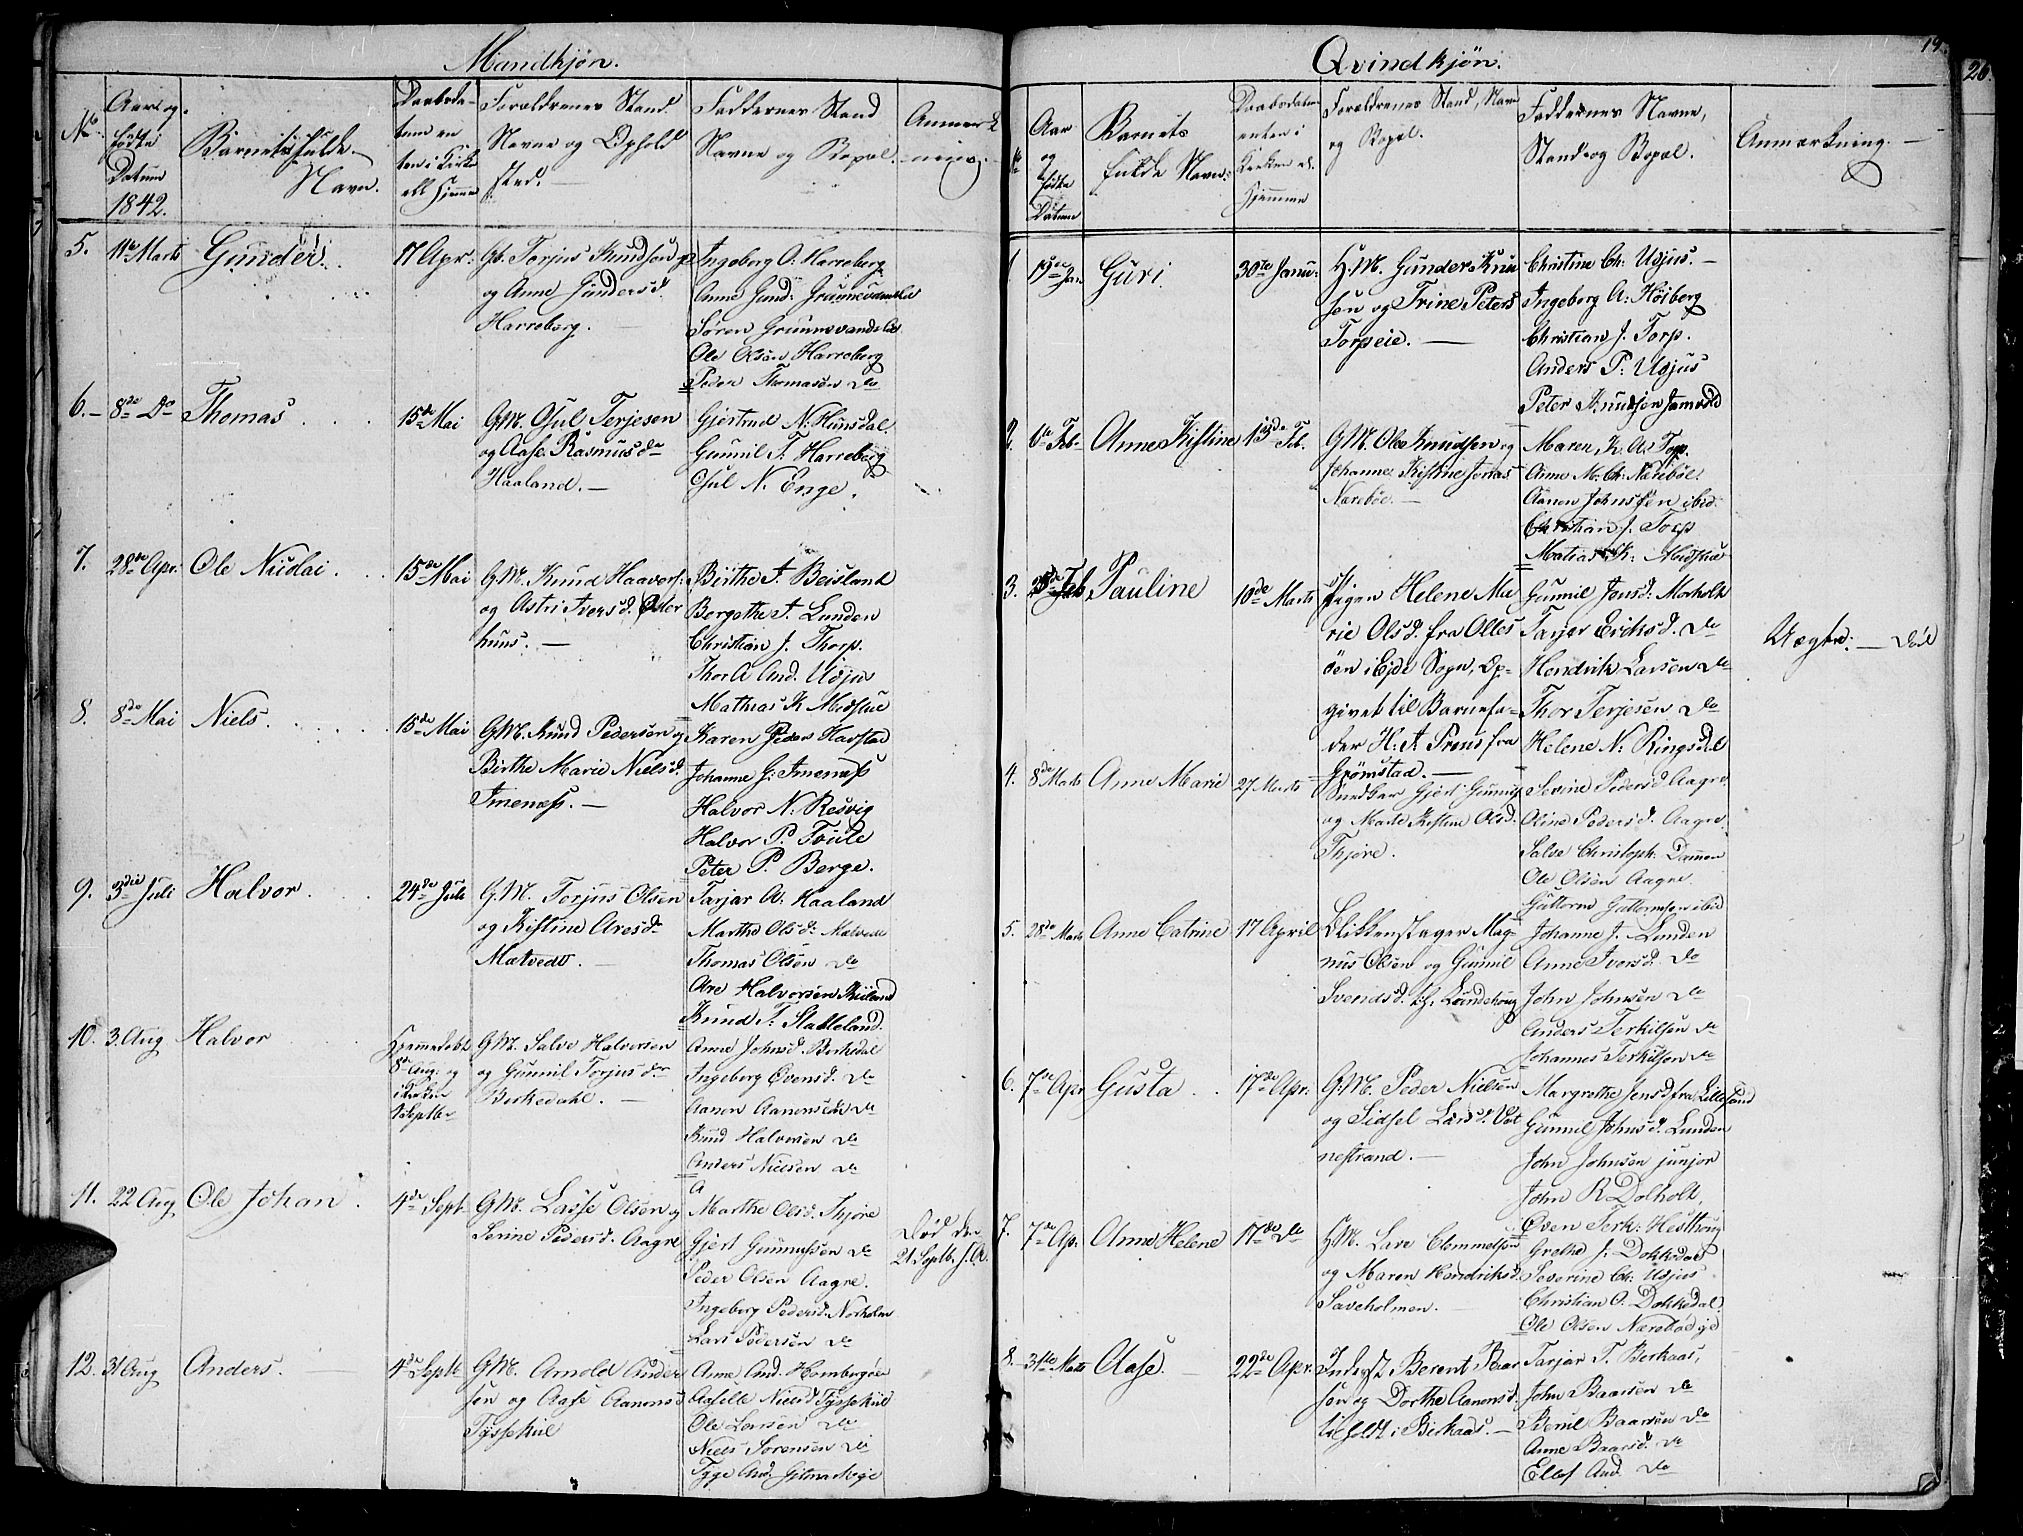 Mandkjøn.
No
Aar og
fødte
Datum
1842.
Barnets fulde
Navn.
Daabsda-
tum en
ten i Kirke
ell. Hjemme
Forældrenes Stand
Navne og Ophold
sted.
Faddernes Stand
Navne og Bopæl.
Anmærk
ning.
5. 11te Marts Gunder. 17 Apr.
Gb. Terjus Knudsen
og Anne Gundersd.
Harreberg.
Ingeborg O. Harreberg
Anne Gund:
Søren
Ole Olsen Harreberg
Peder Thomasen Do
6. 8de Do Thomas 15de Mai
GM. Osul Terjesen
og Aase Rasmusd.
Haaland.
Gjertrud N. Hunsdal
Gunnil T. Harreberg
Osul N. Enge.
7. 28de Apr. Ole Nicolai. 15de Mai
GM. Knud Haavors:
og Astri Iversd. Øster
huus.
Birthe A. Beisland
Bergethe A. Lunden
Christian J. Thorp.
Thor A And. Udjus
Mathias K. Midstue
8. 8de Mai Niels. 15de Mai
GM. Knud Pedersen og
Birthe Marie Nielsd.
Imenæss.
Karen Peders Havstad
Johanne G. Imenæss
Halvor N. Resvig
Halvor P. Tveite
Peter P. Berge.
9. 3die Juli Halvor. 24de Juli
GM. Torjus Olsen
og Kistine Aresd.
Mætvedt.
Tarjær A. Haaland
Marthe Olsd.
Thomas Olsen Do
Are Halvorsen
Knud T. Stalleland.
10. 3. Aug Halvor
Hjemmedøbt
8de Aug. og
i Kirken
4 Septbr
GM. Salve Halvorsen
og Gunnil Torjusd.
Birkedahl.
Anne Johnsd. Birkedal
Ingeborg Evensd. Do
Aanon Aanonsen Do
Knud Halvorsen Do
Anders Nielsen Do
11. 22 Aug Ole Johan. 4de Sept.
GM. Lasse Olsen og
Serine Pedersd. Aagre
Marthe Olsd. Thjøre
Gjert Gunnufsen Do
Peder Olsen Aagre.
Ingeborg Pedersd. Norholm
Lars Pedersen Do
Død den
21 Septb. s. A.
12. 31 Aug Anders. 4de Septb
GM. Arnold Ander
sen og Aase Aanonsd
Tyssekiil
Anne And. Homborgøen
Aaselle Nielsd Tyssekiil
Ole Larsen Do
Niels Sørensen Do
Tyge And.
Qvindkjøn.
19.
26.
Aar
og
fødte
Datum
Barnets
fulde Navn.
Daabsdatum
enten i
Kirken el.
Hjemme
Forældrenes Stand, Navn
og Bopæl.
Faddernes Navne,
Stand og Bopæl.
Anmærkning.
1 19de Jan. Guri. 30te Janu:
H.M. Gunder Knu
sen og Trine Peters
Torpeie.
Christine Ch. Udjus.
Ingeborg A. Høiberg
Christian J. Torp.
Anders P. Udjus
Peter Knudsen
2. 6te Feb. Anne Kistine 13de Feb.
GM. Ole Knudsen og
Johanne Kistine Jonas
Nærebøe.
Maren K. A. Torp.
Anne M. Ch. Nærebøe.
Aanon Johnsen ibid.
Christian J. Torp
Matias K. Midstue
3. 25de Feb Pauline 10de Marts
Pigen Helene Ma
rie Olsd. fra Olles
øen i Eide Sogn, Op-
givet til Barnefa-
der H. A. Preus fra
Grømstad.
Gunnil Jensd. Morholt
Tarjær Eriksd. Do
Hendrik Larsen Do
Thor Terjesen Do
Helene N. Ringsdal
Uægte. Død
4. 8de Marts Anne Marie 27 Marts
Gjert Gunnufs
og Marte Kistine Olsd.
Thjøre.
Serine Pedersd Aagre.
Oline Pedersd. Aagre.
Salve Christoph. Dammen
Ole Olsen Aagre.
Guttorm Guttormsen ibid
5. 28de Marts Anne Catrine 17 April
Blikkenslager Mag-
nus Olsen og Gunnil
Svendsd.
Johanne J. Lunden
Anne Iversd. Do
John Johnsen Do
Anders Terkilsen Do
Johannes Terkilsen Do
6. 7de Apr Gusta 17de Apr.
G.M. Peder Nielsen
og Sidsel Larsd. Vat
nestrand.
Margrethe Jensd. fra Lillesand
Gunnil Johnsd. Lunden
John Johnsen junjor
John R Dolholt
Even Terk: Hesthoug
7. 7de Ap. Anne Helene 17de Do
H.M. Lars Clemmetsen
og Maren Hendriksd
Saveholmen.
Grethe J. Dokkedal
Severine Ch. Udjus
Christian O. Dokkedal
Ole Olsen
8. 31te Marts Aase. 22de Apr.
Inderst Berent Baar
sen og Dorthe Aanonsd.
tilholdt i Birkaas.
Tarjær T. Berkaas,
John Baarsen Do
Berul Baarsen Do
Anne Baarsd. Do
Ellef And. Do